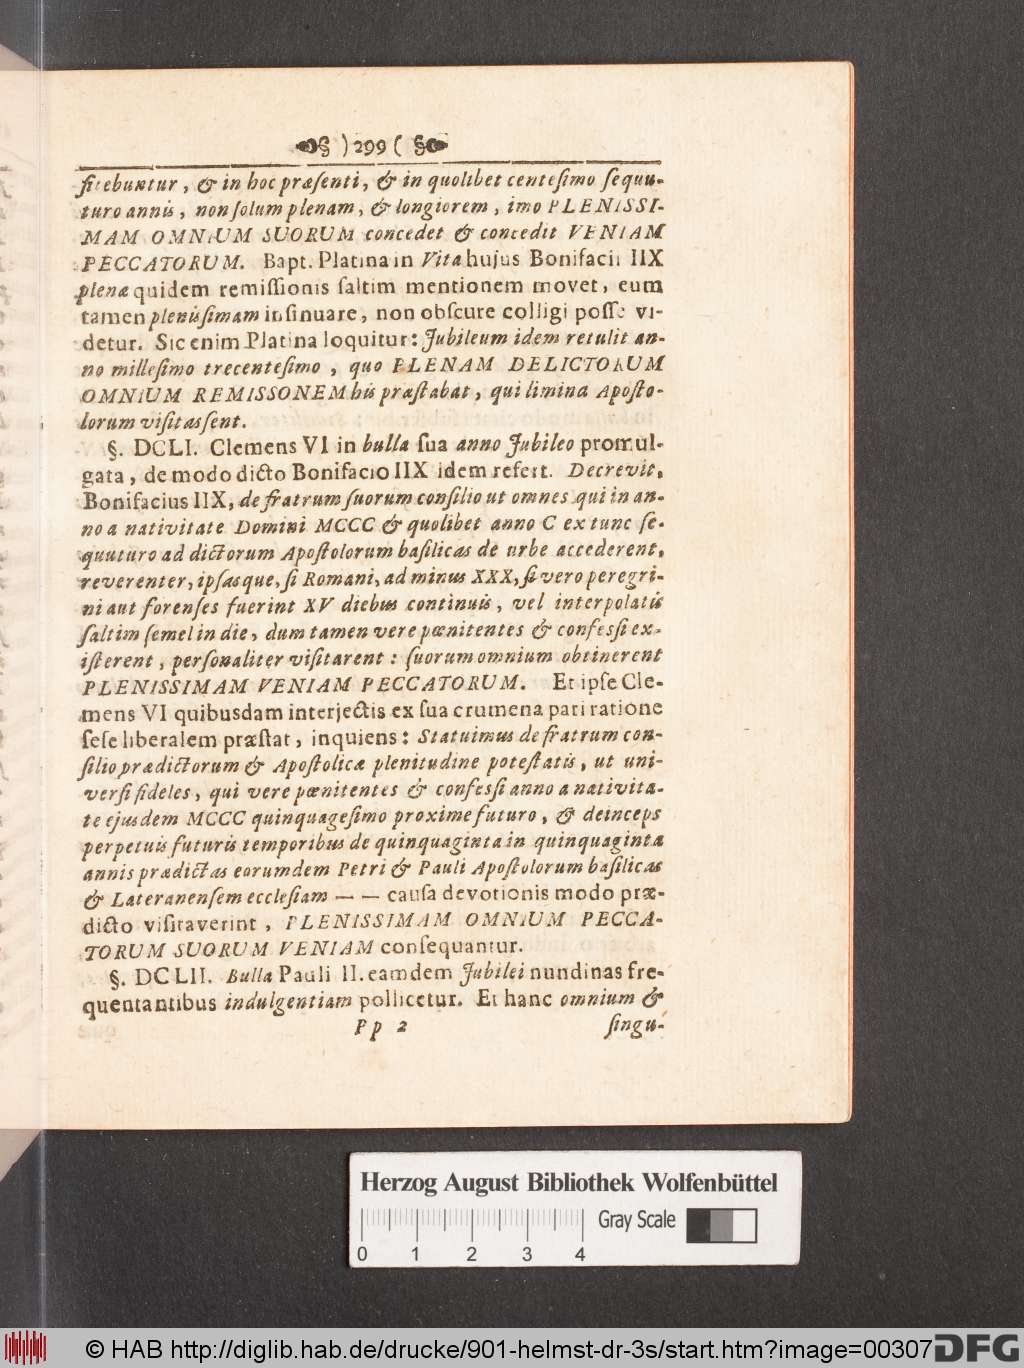 § ) 299 ( §
fitebuntur, & in hoc præsenti, & in quolibet centesimo sequu-
turo annis, non solum plenam, & longiorem, imo PLENISSI-
MAM OMNIUM SUORUM concedet & concedit VENIAM
PECCATORUM. Bapt. Platina in Vita hujus Bonifacii IIX
plenæ quidem remissionis saltim mentionem movet, eum
tamen plenissimam insinuare, non obscure colligi posse vi-
detur. Sic enim Platina loquitur: Jubileum idem retulit an-
no millesimo trecentesimo, quo PLENAM DELICTORUM
OMNIUM REMISSONEM his præstabat, qui limina Aposto-
lorum visitassent.
§. DCLI. Clemens VI in bulla sua anno Jubileo promul-
gata, de modo dicto Bonifacio IIX idem refert. Decrevit,
Bonifacius IIX, de fratrum suorum consilio ut omnes qui in an-
no a nativitate Domini MCCC & quolibet anno C ex tunc se-
quuturo ad dictorum Apostolorum basilicas de urbe accederent,
reverenter, ipsasque, si Romani, ad minus XXX, si vero peregri-
ni aut forenses fuerint XV diebus continuis, vel interpolatis
saltim semel in die, dum tamen vere pœnitentes & confessi ex-
isterent, personaliter visitarent: suorum omnium obtinerent
PLENISSIMAM VENIAM PECCATORUM. Et ipse Cle-
mens VI quibusdam interjectis ex sua crumena pari ratione
sese liberalem præstat, inquiens: Statuimus de fratrum con-
silio prædictorum & Apostolicæ plenitudine potestatis, ut uni-
versi fideles, qui vere pœnitentes & confessi anno a nativita-
te ejusdem MCCC quinquagesimo proxime futuro, & deinceps
perpetuis futuris temporibus de quinquaginta in quinquaginta
annis prædictas eorumdem Petri & Pauli Apostolorum basilicas
& Lateranensem ecclesiam — — causa devotionis modo præ-
dicto visitaverint, PLENISSIMAM OMNIUM PECCA-
TORUM SUORUM VENIAM consequantur.
§. DCLII. Bulla Pauli II. eamdem Jubilei nundinas fre-
quentantibus indulgentiam pollicetur. Et hanc omnium &
Pp 2 singu-
Herzog August Bibliothek Wolfenbüttel
Gray Scale
0 1 2 3 4
© HAB http://diglib.hab.de/drucke/901-helmst-dr-3s/start.htm?image=00307
DFG